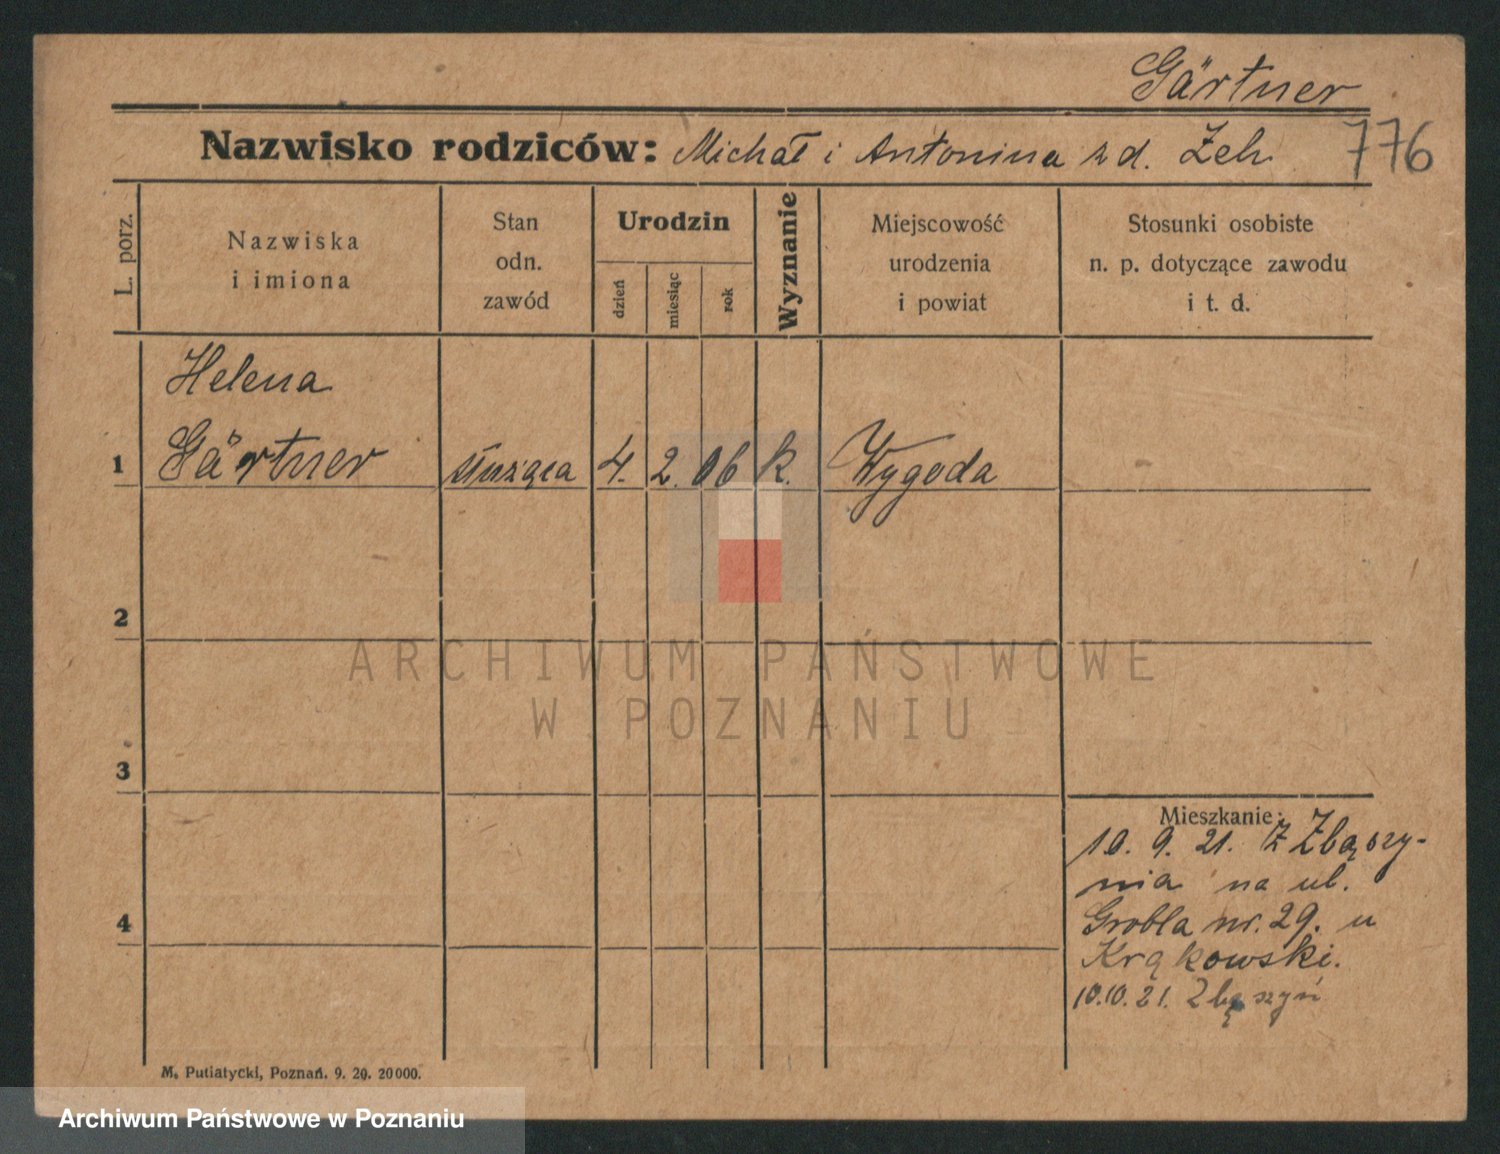 Gärtner
Nazwisko rodziców: Michał i Antonina z d. Zeh
776
L. porz.
Nazwiska
i imiona
Stan
odn.
zawód
Urodzin
dzień
miesiąc
rok
Wyznanie
Miejscowość
urodzenia
i powiat
Stosunki osobiste
n. p. dotyczące zawodu
i t. d.
Helena
1 Gärtner służąca 4. 2. 06 k. Wygoda
2
3
4
Mieszkanie:
10. 9. 21. Z Zbąszy-
nia na ul.
Grobla nr. 29. u
Krąkowski.
10.10.21. Zbąszyń
M. Putiatycki, Poznań. 9. 20. 20000.
ARCHIWUM PAŃSTWOWE
W POZNANIU
Archiwum Państwowe w Poznaniu